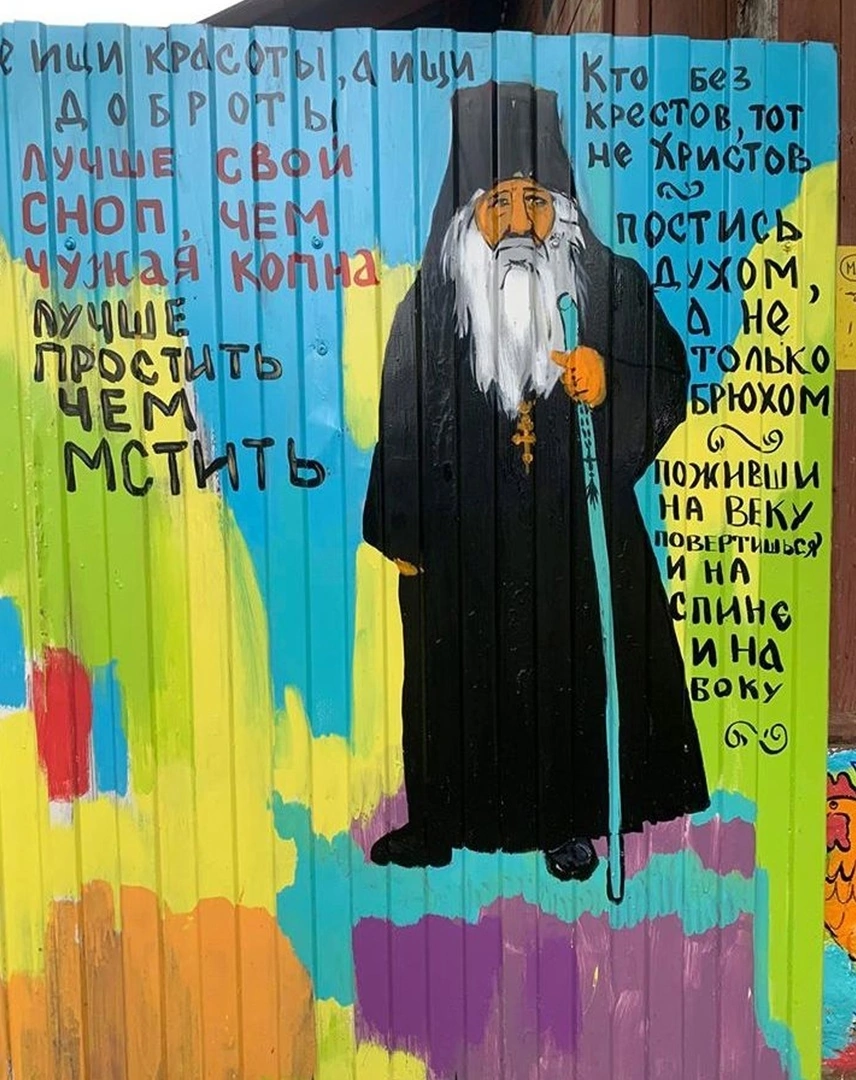 е ищи красоты, а ищи
доброты
лучше свой
сноп, чем
чужая копна
лучше
простить
чем
мстить
Кто без
крестов, тот
не Христов
постись
духом,
а не
только
брюхом
поживши
на веку
повертишься
и на
спине
и на
боку
М